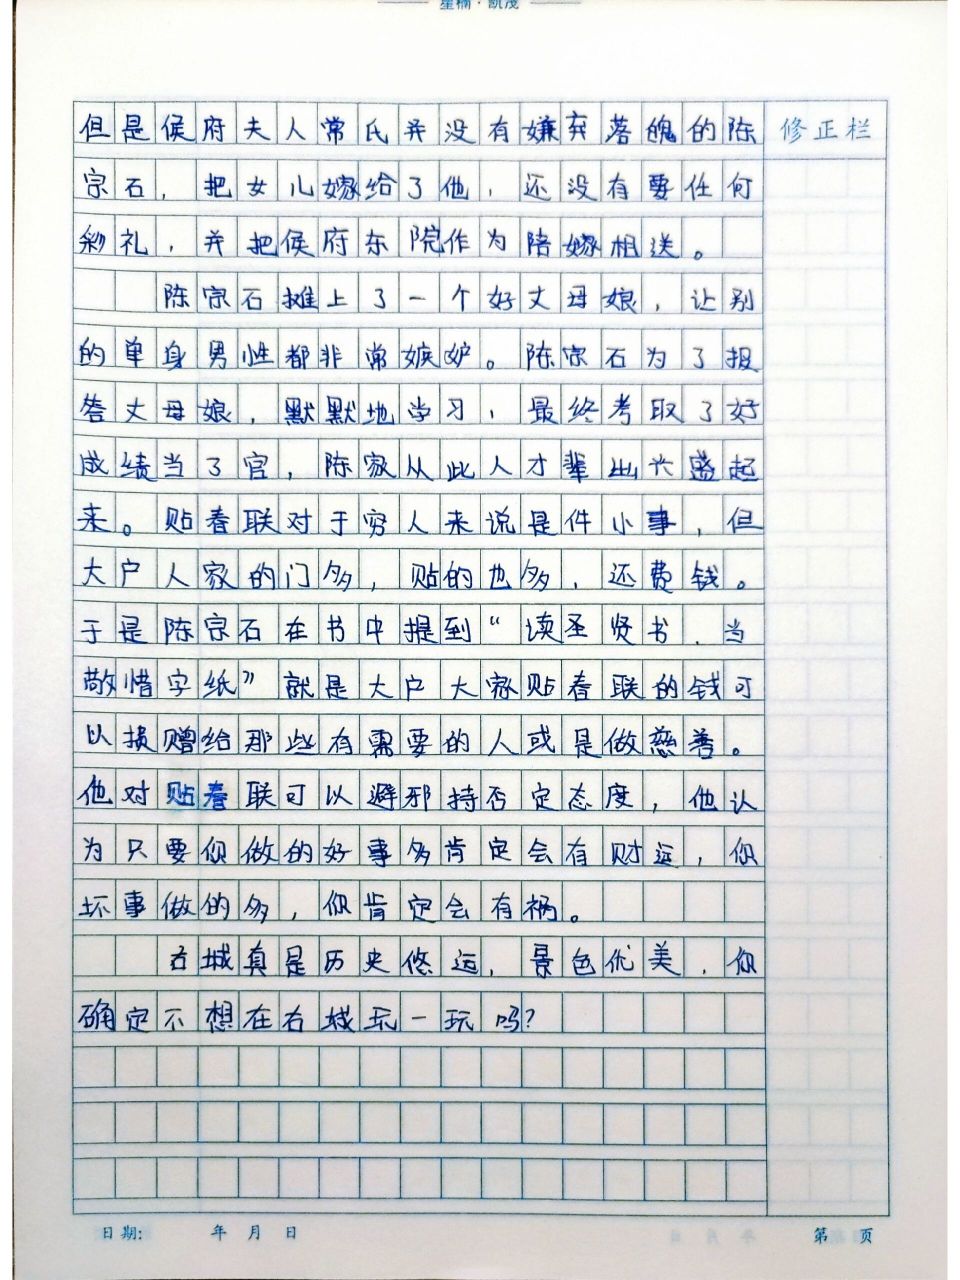 星楠·凯茂
但是侯府夫人常氏并没有嫌弃落魄的陈
修正栏
宗石，把女儿嫁给了他，还没有要任何
彩礼，并把侯府东院作为陪嫁相送。
陈宗石摊上了一个好丈母娘，让别
的单身男性都非常嫉妒。陈宗石为了报
答丈母娘，默默地学习，最终考取了好
成绩当了官，陈家从此人才辈出兴盛起
来。贴春联对于穷人来说是件小事，但
大户人家的门多，贴的也多，还费钱。
于是陈宗石在书中提到“读圣贤书，当
敬惜字纸”就是大户大家贴春联的钱可
以损赠给那些有需要的人或是做慈善。
他对贴春联可以避邪持否定态度，他认
为只要你做的好事多肯定会有财运，你
坏事做的多，你肯定会有祸。
古城真是历史悠运，景色优美，你
确定不想在右城玩一玩吗？
日期: 年 月 日
第 页